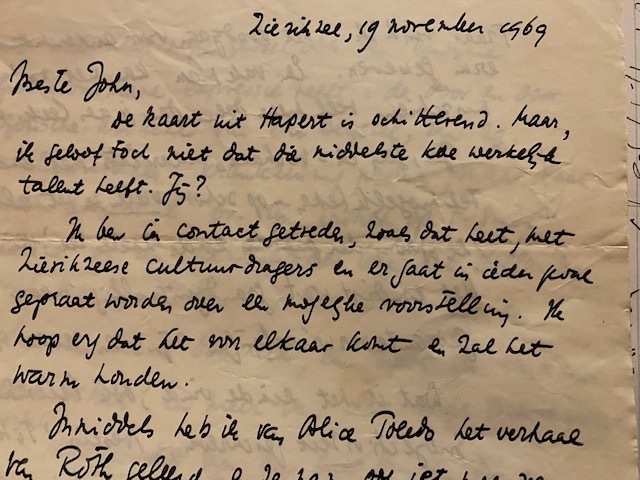 Zierikzee, 19 november 1969
Beste John,
De kaart uit Hapert is schitterend. Maar,
ik geloof toch niet dat die middelste koe werkelijk
talent heeft. Jij?
Ik ben in contact getreden, zoals dat heet, met
Zierikzeese cultuurdragers en er gaat in ieder geval
gepraat worden over een mogelijke voorstelling. Ik
hoop erg dat het voor elkaar komt en zal het
warm houden.
Inmiddels heb ik van Alice Toledo het verhaal
van Roth geleend